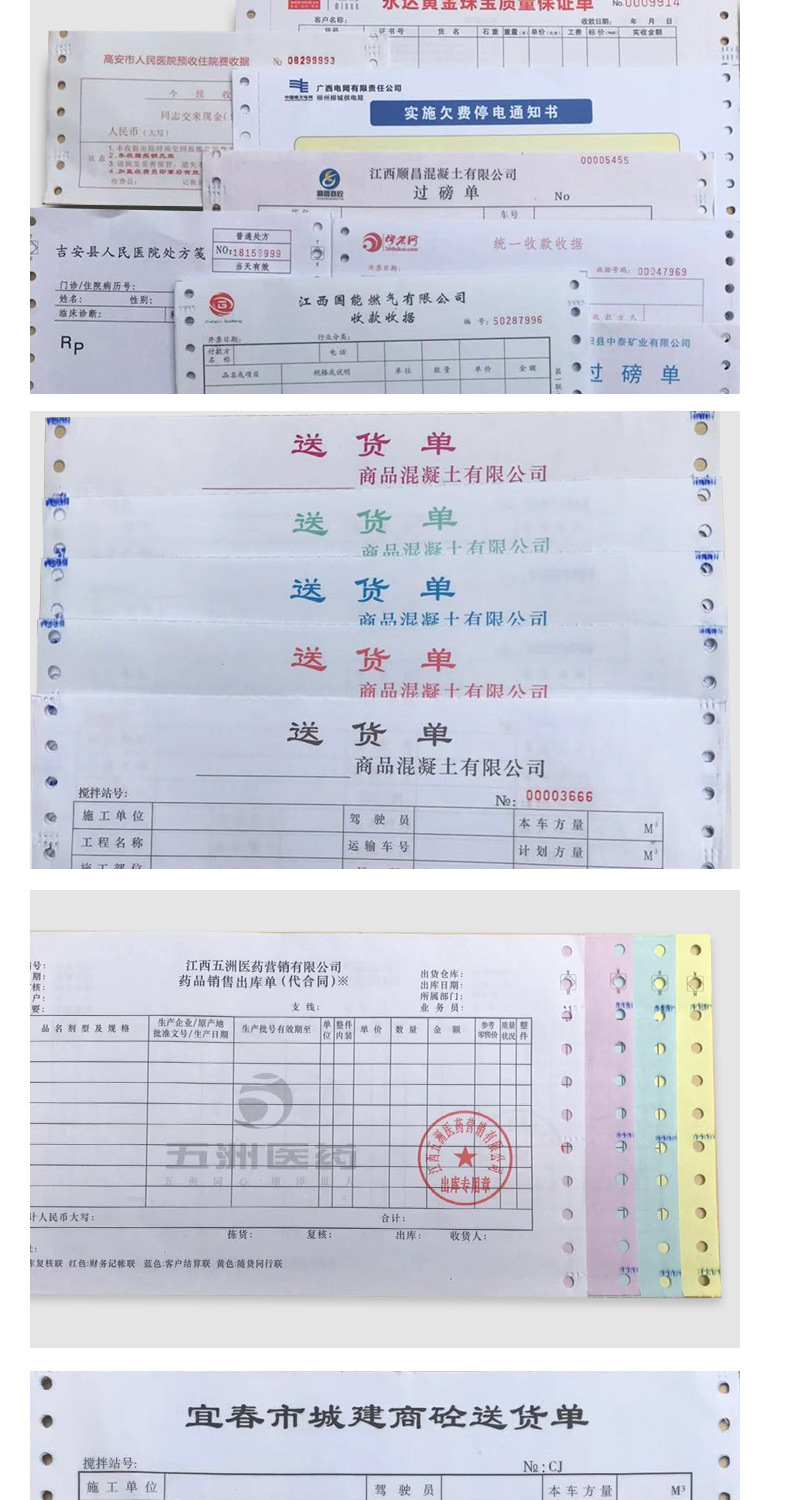 永达黄金珠宝质量保证单 No.0009914
客户名称: 收款日期: 年 月 日
证书号 货 名 石重 重量 单价 工费 标价 实收金额
高安市人民医院预收住院费收据 No 08299993
今 预 收
同志交来现金(
人民币(大写)
广西电网有限责任公司
柳州柳城供电局
实施欠费停电通知书
00005455
江西顺昌混凝土有限公司
过磅单 No
车号
吉安县人民医院处方笺
普通处方
NO:18159999
当天有效
门诊/住院病历号:
姓名: 性别:
临床诊断:
Rp
统一收款收据
开票日期: 收据号码: 00047969
收款方式
江西国能燃气有限公司
收款收据 编 号: 50287996
开票日期: 行业分类:
付款方名 称 电话
品名或项目 规格或说明 单位 数量 单价 金额
县中泰矿业有限公司
过磅单
送货单
商品混凝土有限公司
送货单
商品混凝土有限公司
送货单
商品混凝土有限公司
送货单
商品混凝土有限公司
送货单
商品混凝土有限公司
搅拌站号: №: 00003666
施工单位 驾驶员 本车方量 M³
工程名称 运输车号 计划方量 M³
施工部位
江西五洲医药营销有限公司
药品销售出库单(代合同)※
出货仓库:
出库日期:
所属部门:
支线: 业务员:
品名剂型及规格 生产企业/原产地 批准文号/生产日期 生产批号有效期至 单位 整件内装 单价 数量 金额 参考零售价 质量状况 整件
五洲医药
江西五洲医药营销有限公司
出库专用章
计人民币大写: 合计:
拣货: 复核: 出库: 收货人:
库复核联 红色:财务记帐联 蓝色:客户结算联 黄色:随货同行联
宜春市城建商砼送货单
搅拌站号: №:CJ
施工单位 驾驶员 本车方量 M³